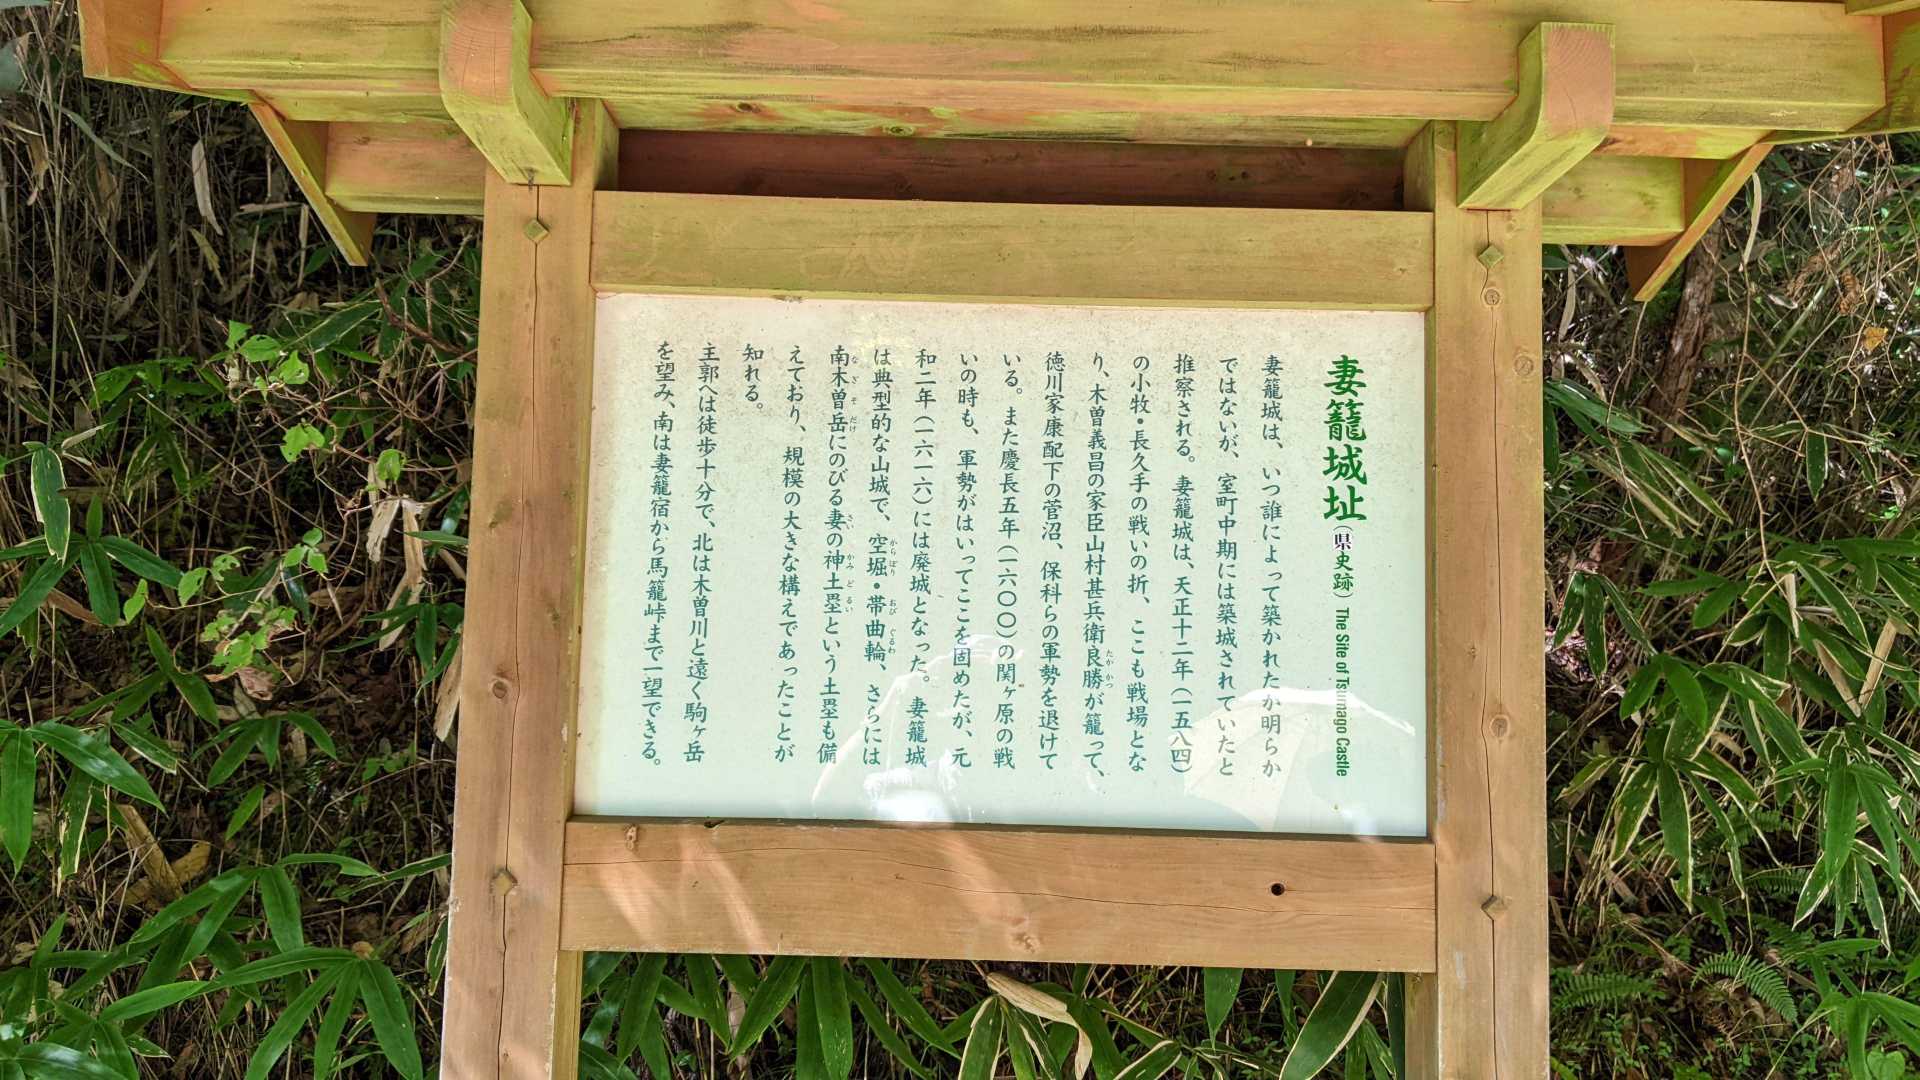 妻籠城址（県史跡） The Site of Tsumago Castle
妻籠城は、いつ誰によって築かれたか明らか
ではないが、室町中期には築城されていたと
推察される。妻籠城は、天正十二年（一五八四）
の小牧・長久手の戦いの折、ここも戦場とな
り、木曽義昌の家臣山村甚兵衛良勝が籠って、
たかかつ
徳川家康配下の菅沼、保科らの軍勢を退けて
いる。また慶長五年（一六〇〇）の関ヶ原の戦
いの時も、軍勢がはいってここを固めたが、元
和二年（一六一六）には廃城となった。妻籠城
は典型的な山城で、空堀・帯曲輪、さらには
からぼり おび ぐるわ
南木曽岳にのびる妻の神土塁という土塁も備
なぎそだけ さいかみどるい
えており、規模の大きな構えであったことが
知れる。
主郭へは徒歩十分で、北は木曽川と遠く駒ヶ岳
を望み、南は妻籠宿から馬籠峠まで一望できる。